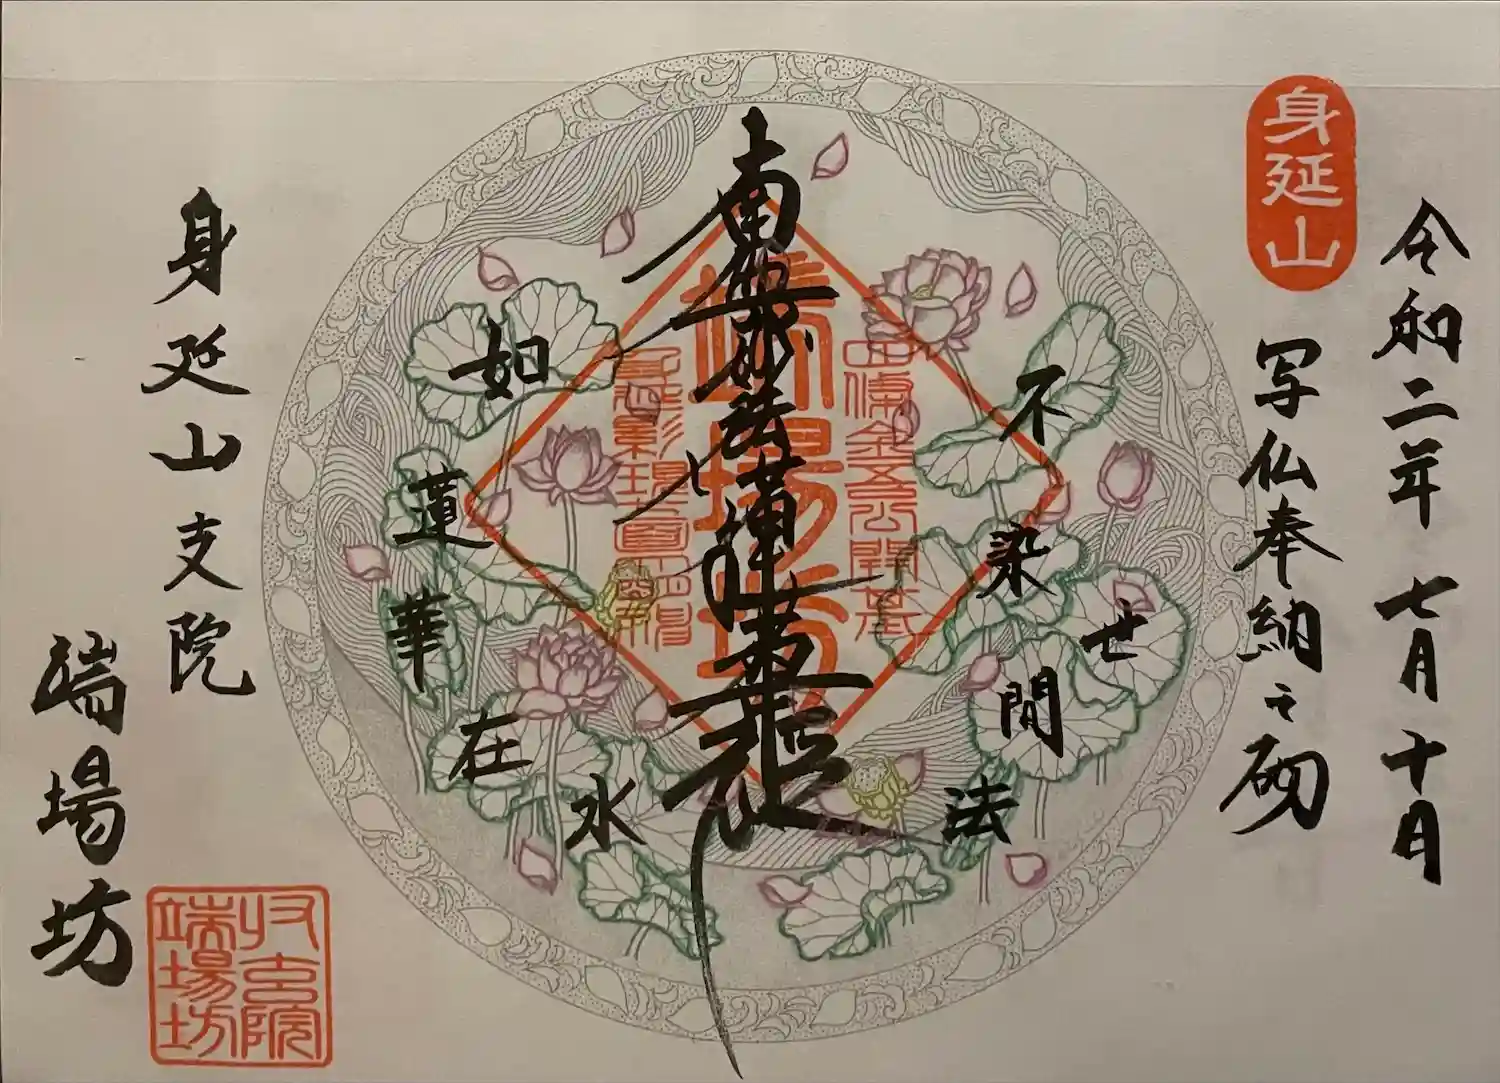 令和二年七月十月
身延山
写仏奉納之砌
不染世間法
四條金吾公開基
南無妙法蓮華経
端場坊
如蓮華在水
身延山支院
端場坊
端場坊